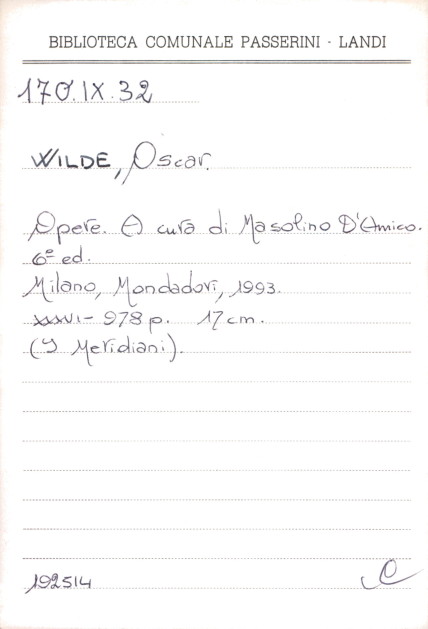 BIBLIOTECA COMUNALE PASSERINI - LANDI
170.IX.32
WILDE, Oscar.
Opere. A cura di Masolino D'Amico.
6ª ed.
Milano, Mondadori, 1993.
XXXVI- 978 p. 17 cm.
(I Meridiani).
192514
C